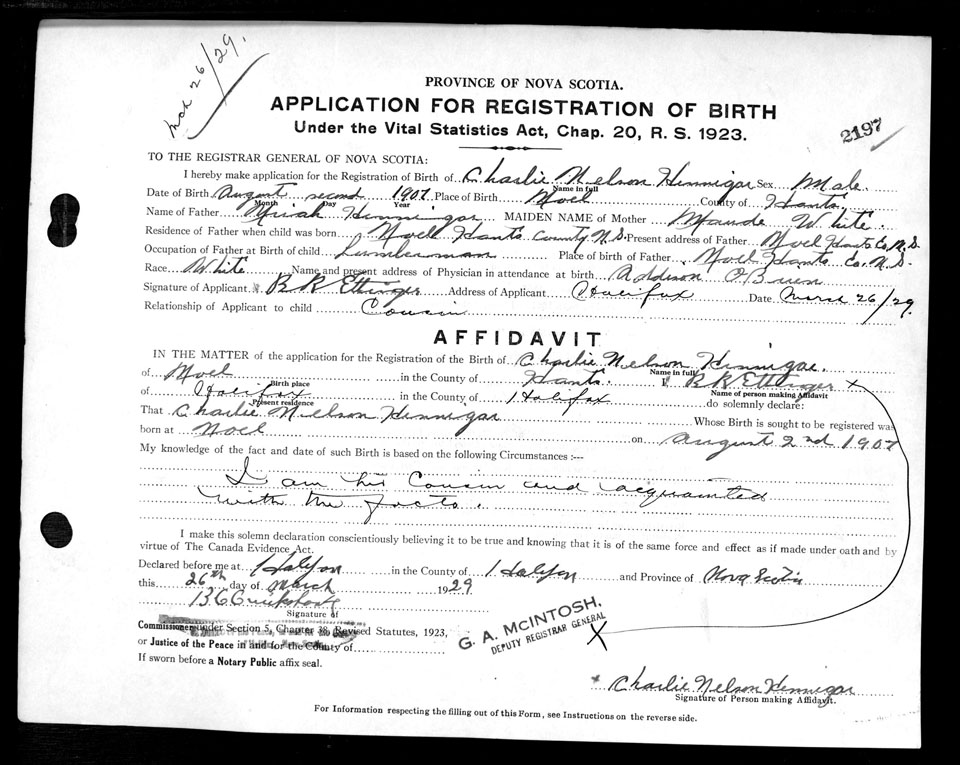 Mch 26/29.
PROVINCE OF NOVA SCOTIA.
APPLICATION FOR REGISTRATION OF BIRTH
Under the Vital Statistics Act, Chap. 20, R. S. 1923.
2197
TO THE REGISTRAR GENERAL OF NOVA SCOTIA:
I hereby make application for the Registration of Birth of Charlie Nelson Hennigar Sex Male.
Name in full
Date of Birth August second 1907 Place of Birth Noel County of Hants.
Month Day Year
Name of Father Hennigar MAIDEN NAME of Mother Maude White.
Residence of Father when child was born Noel Hants County N.S. Present address of Father Noel Hants Co. N.S.
Occupation of Father at Birth of child Lumberman Place of birth of Father Noel Hants Co. N.S.
Race White Name and present address of Physician in attendance at birth Addison O'Brien
Signature of Applicant B R Ettinger Address of Applicant Halifax Date March 26/29.
Relationship of Applicant to child Cousin
AFFIDAVIT
IN THE MATTER of the application for the Registration of the Birth of Charlie Nelson Hennigar.
Name in full
of Noel in the County of Hants. I, B R Ettinger x
Birth place Name of person making Affidavit
of Halifax in the County of Halifax do solemnly declare:
Present residence
That Charlie Nelson Hennigar Whose Birth is sought to be registered was
born at Noel on August 2nd 1907
My knowledge of the fact and date of such Birth is based on the following Circumstances :--
I am his Cousin and acquainted
with the facts.
I make this solemn declaration conscientiously believing it to be true and knowing that it is of the same force and effect as if made under oath and by
virtue of The Canada Evidence Act.
Declared before me at Halifax in the County of Halifax and Province of Nova Scotia
this 26th day of March 1929
Signature of
Commissioner under Section 5, Chapter 38, Revised Statutes, 1923,
or Justice of the Peace in and for the County of
If sworn before a Notary Public affix seal.
G. A. McINTOSH,
DEPUTY REGISTRAR GENERAL
X
x Charlie Nelson Hennigar
Signature of Person making Affidavit.
For Information respecting the filling out of this Form, see Instructions on the reverse side.